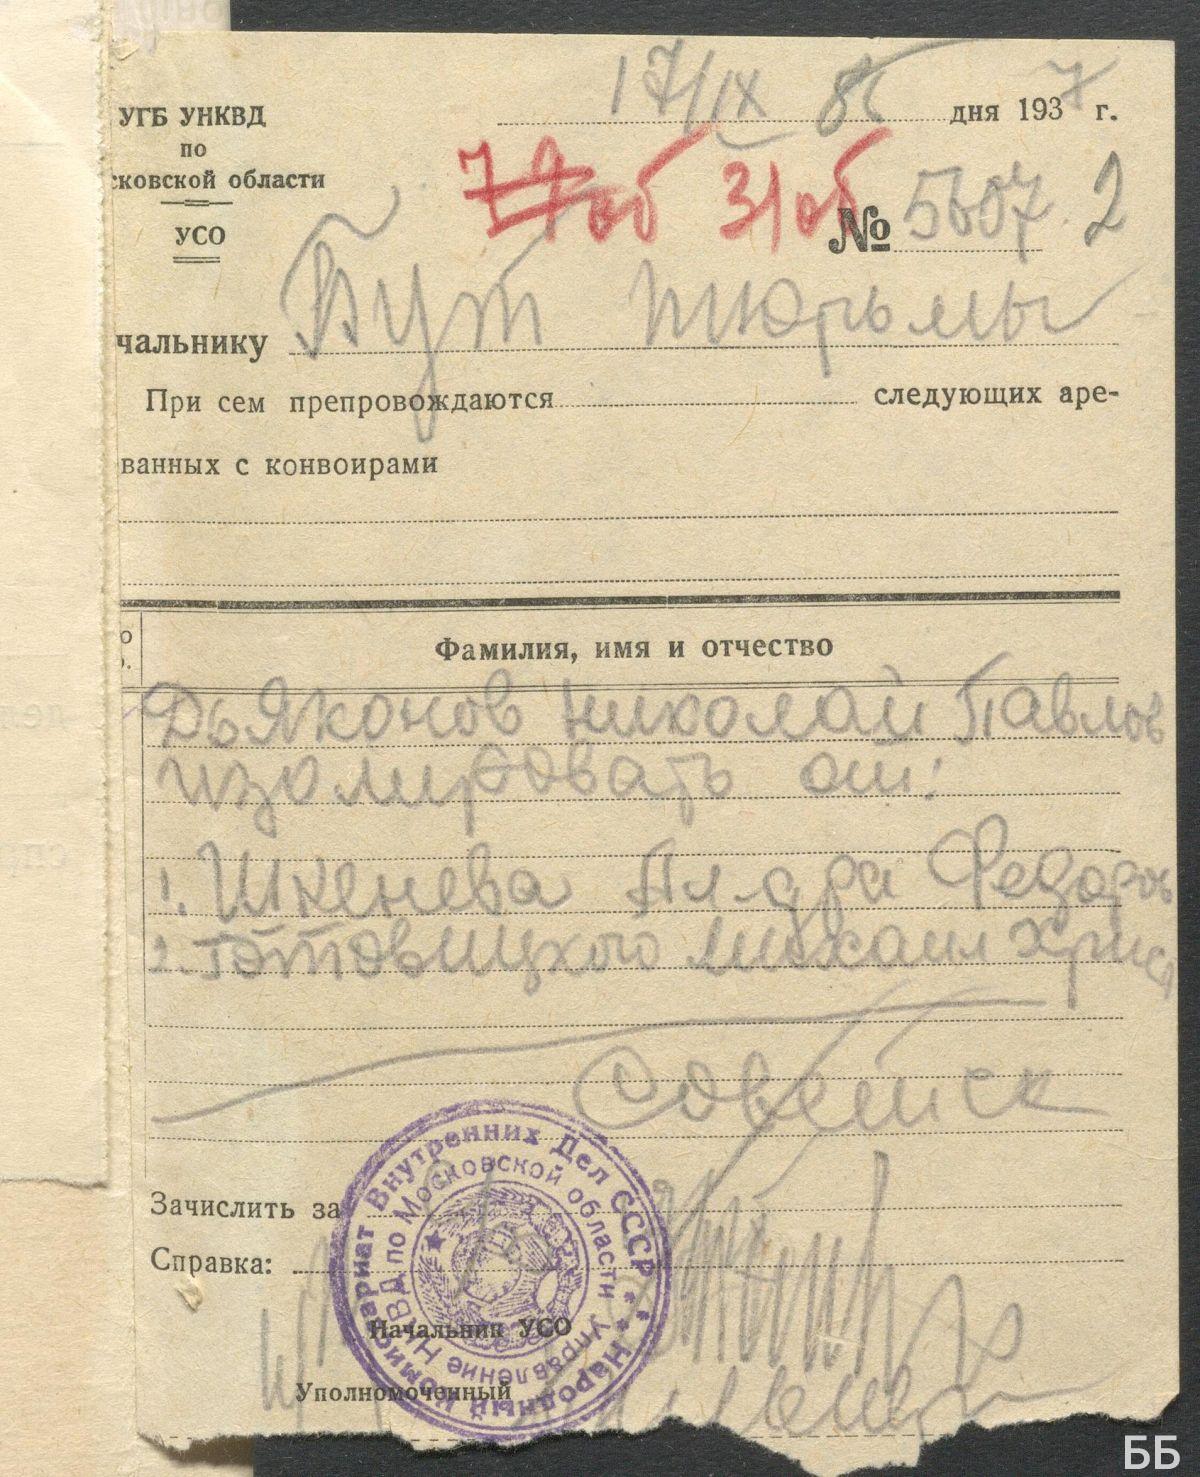 УГБ УНКВД
по
сковской области
УСО
17/IX дня 1937 г.
77об 31об
№ 5607. 2
чальнику Бут тюрьмы
При сем препровождаются следующих аре-
ванных с конвоирами
о
Фамилия, имя и отчество
Дьяконов Николай Павлов
изолировать от:
1. Шкенева Федоров
2. Готовицкого Михаил Христ
Зачислить за
Справка:
Начальник УСО
Уполномоченный
Народный Комиссариат Внутренних Дел СССР
Управление НКВД по Московской области
ББ